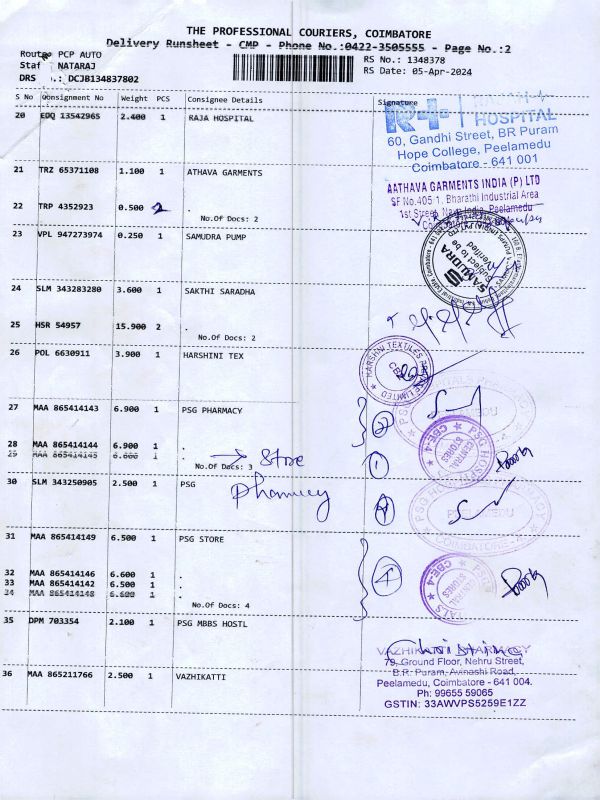 THE PROFESSIONAL COURIERS, COIMBATORE
Delivery Runsheet - CMP - Phone No.:0422-3505555 - Page No.:2
Route: PCP AUTO
RS No.: 1348378
Staf NATARAJ
RS Date: 05-Apr-2024
DRS No.: DCJB134837802
S No Consignment No Weight PCS Consignee Details Signature
20 EDQ 13542965 2.400 1 RAJA HOSPITAL
R+ HOSPITAL
60, Gandhi Street, BR Puram
Hope College, Peelamedu
Coimbatore - 641 001
21 TRZ 65371108 1.100 1 ATHAVA GARMENTS
AATHAVA GARMENTS INDIA (P) LTD
SF No.405/1, Bharathi Industrial Area
1st Street, Nava India, Peelamedu
22 TRP 4352923 0.500 2 .
No.Of Docs: 2
23 VPL 947273974 0.250 1 SAMUDRA PUMP
SAMUDRA
Subject to be
Verified
24 SLM 343283280 3.600 1 SAKTHI SARADHA
25 HSR 54957 15.900 2 .
No.Of Docs: 2
26 POL 6630911 3.900 1 HARSHINI TEX
HARSHNI TEXTILES PRIVATE LIMITED
CBE
27 MAA 865414143 6.900 1 PSG PHARMACY
2
28 MAA 865414144 6.900 1 .
29 MAA 865414145 6.600 1 .
No.Of Docs: 3
→ Store
1
PSG HOSPITALS
CENTRAL STORES
CBE-4
30 SLM 343250905 2.500 1 PSG
Pharmacy
PSG HOSPITALS PHARMACY
PEELAMEDU
COIMBATORE
31 MAA 865414149 6.500 1 PSG STORE
32 MAA 865414146 6.600 1 .
33 MAA 865414142 6.500 1 .
34 MAA 865414148 6.600 1 .
No.Of Docs: 4
PSG HOSPITALS
CENTRAL STORES
CBE-4
35 DPM 703354 2.100 1 PSG MBBS HOSTL
Christina
36 MAA 865211766 2.500 1 VAZHIKATTI
VAZHIKATTI PHARMACY
79, Ground Floor, Nehru Street,
B.R. Puram, Avinashi Road,
Peelamedu, Coimbatore - 641 004.
Ph: 99655 59065
GSTIN: 33AWVPS5259E1ZZ